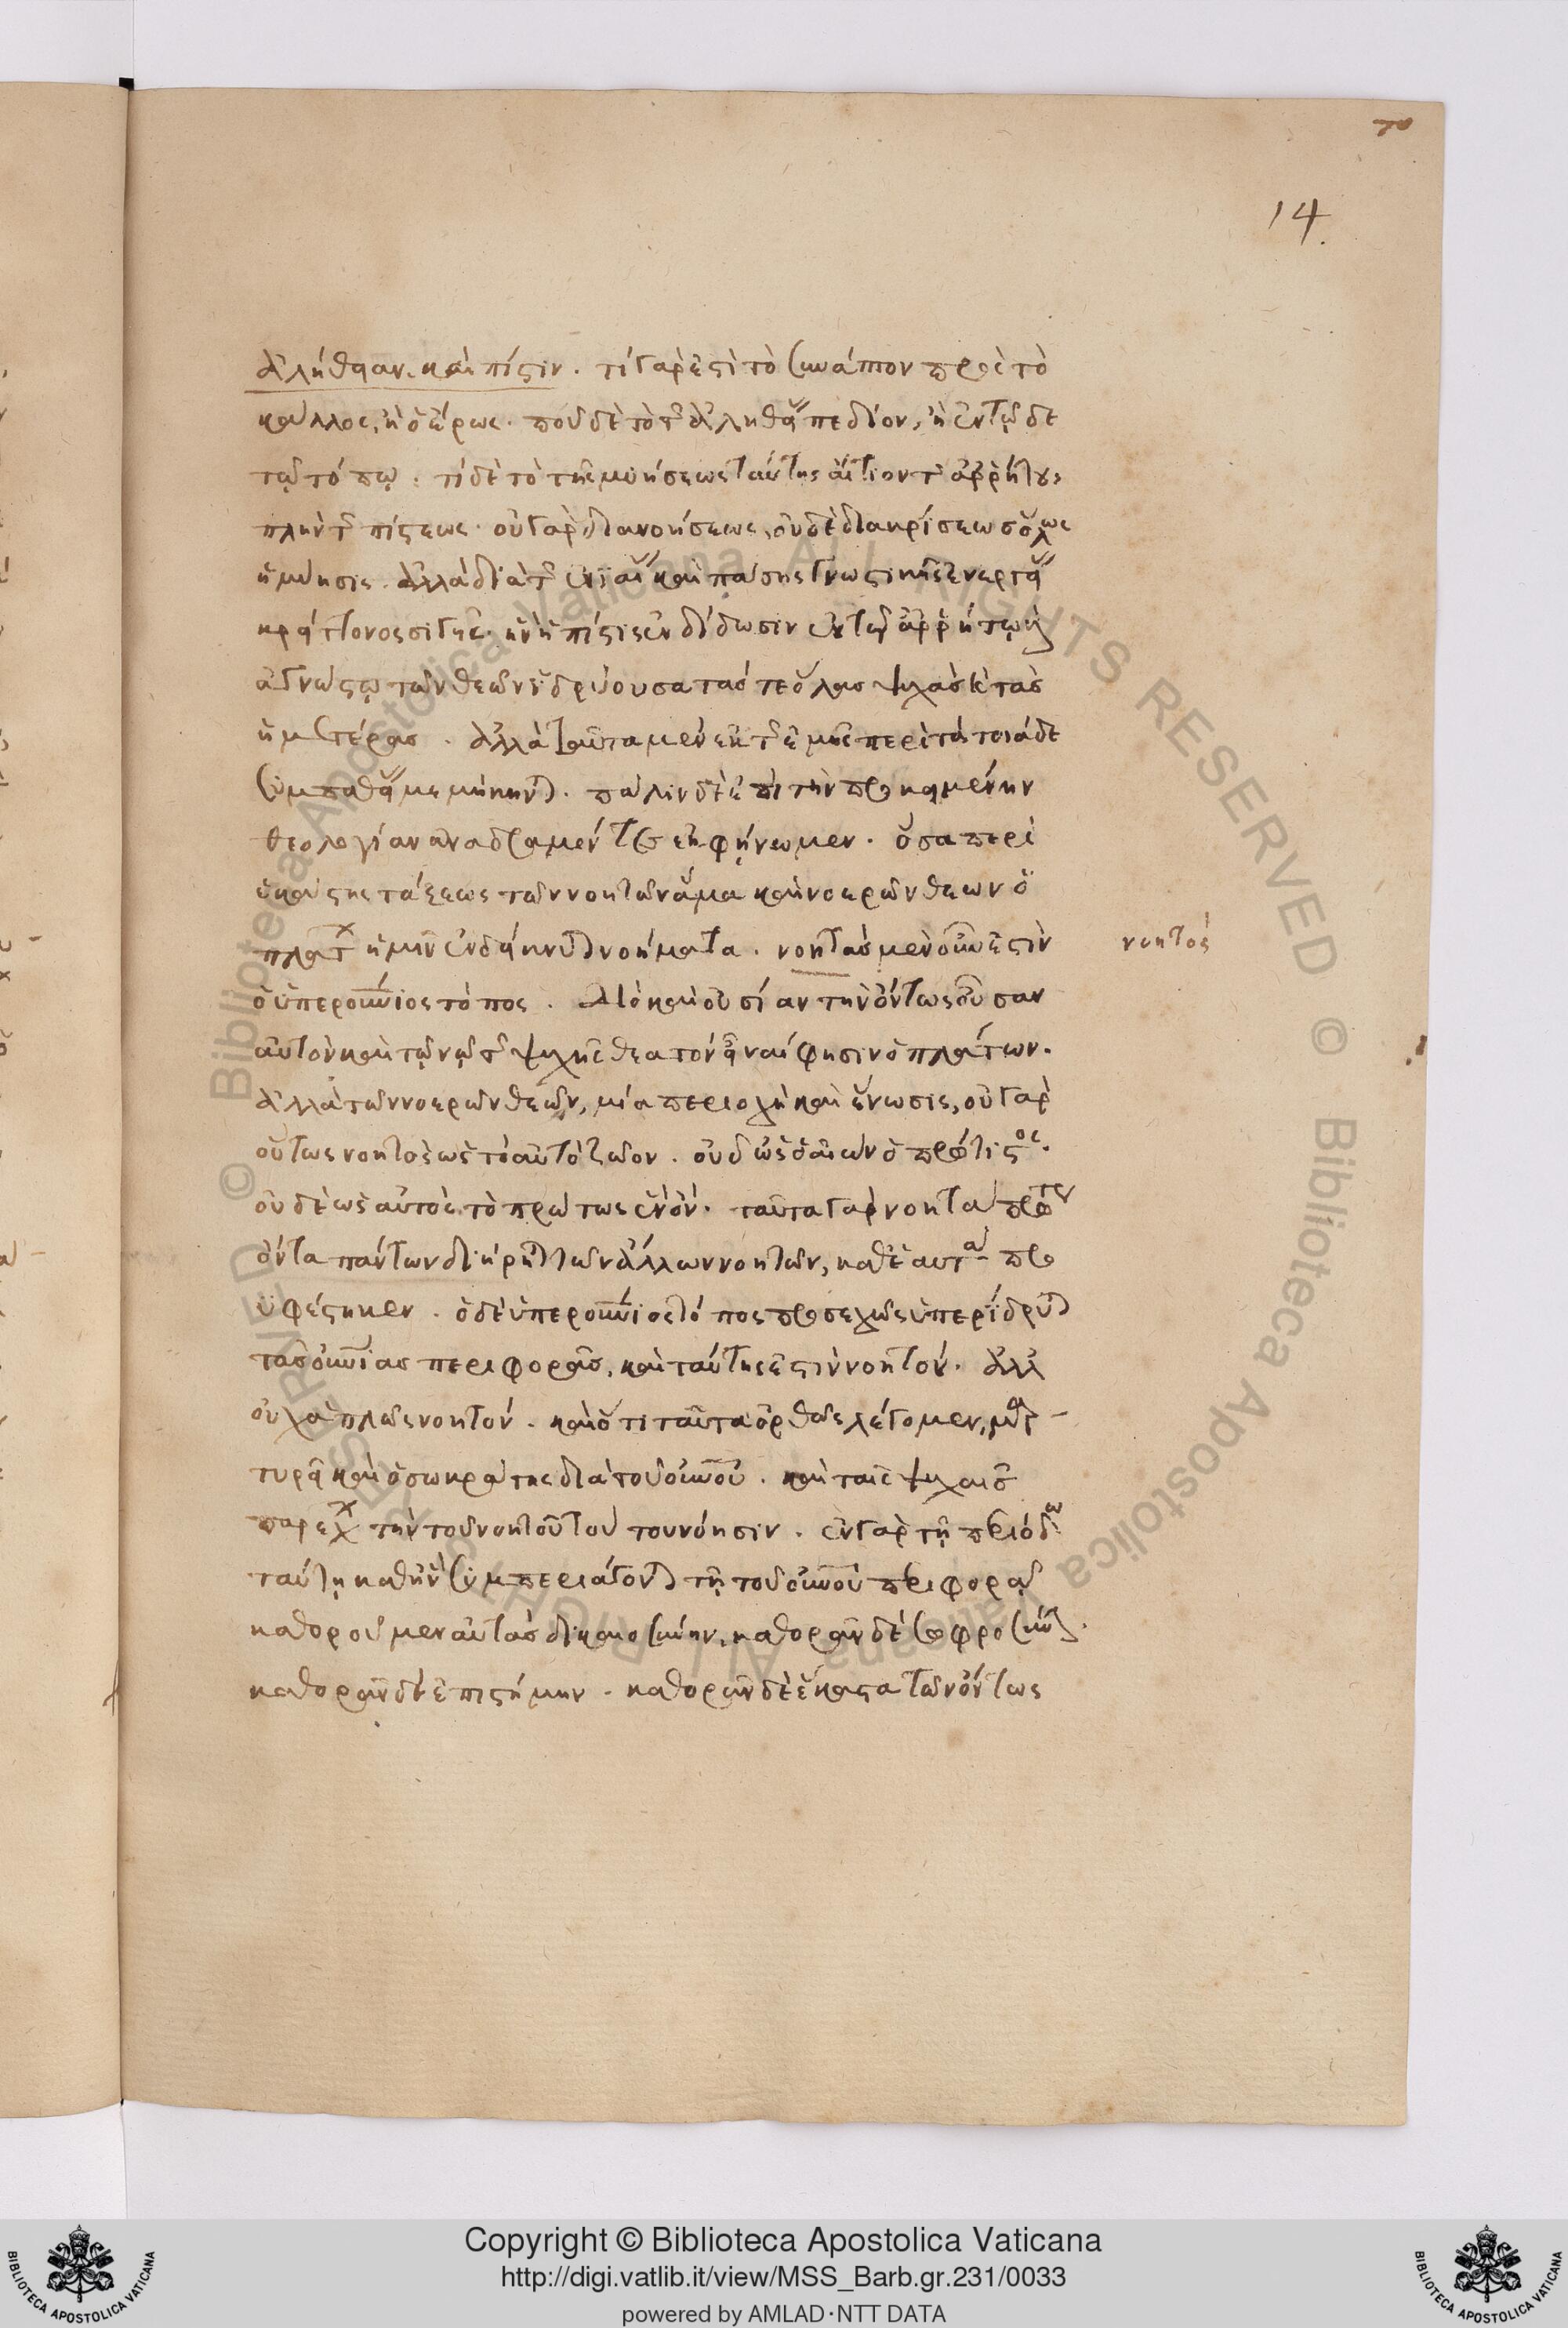 14
ἀλήθειαν, καὶ πίστιν. τί γάρ ἐστι τὸ συνάπτον πρὸς τὸ
κάλλος, ἢ ὁ ἔρως. ποῦ δὲ τὸ τῆς ἀληθείας πεδίον, ἢ ἐν τῷδε
τῷ τόπῳ. τί δὲ τὸ τῆς μυήσεως ταύτης αἴτιον τῆς ἀρρήτου,
πλὴν τῆς πίστεως. οὐ γὰρ διὰ νοήσεως, οὐδὲ διὰ κρίσεως ὅλως
ἡ μύησις. ἀλλὰ διὰ τῆς ἑνιαίας καὶ πάσης γνωστικῆς ἐνεργείας
κρείττονος σιγῆς. ἣν ἡ πίστις ἐνδίδωσιν ἐν τῷ ἀρρήτῳ καὶ
ἀγνώστῳ τῶν θεῶν ἱδρύουσα τάς τε ὅλας ψυχὰς καὶ τὰς
ἡμετέρας. ἀλλὰ ταῦτα μὲν ἐκ τῆς ἐμῆς περὶ τὰ τοιάδε
συμπαθείας μεμήκυνται. πάλιν δὲ ἐπὶ τὴν προκειμένην
θεολογίαν ἀναδραμόντες ἐκφήνωμεν. ὅσα περὶ
ἑκάστης τάξεως τῶν νοητῶν ἅμα καὶ νοερῶν θεῶν ὁ
πλάτων ἡμῖν ἐνδείκνυται νοήματα. νοητὸς μὲν οὖν ἐστὶν
νοητός
ὁ ὑπερουράνιος τόπος. διὸ καὶ οὐσίαν τὴν ὄντως οὖσαν
αὐτὸν καὶ τῷ νῷ τῆς ψυχῆς θεατὸν εἶναί φησιν ὁ πλάτων.
ἀλλὰ τῶν νοερῶν θεῶν, μία περιοχὴ καὶ ἕνωσις, οὐ γὰρ
οὕτως νοητὸς ὡς τὸ αὐτόζωον. οὐδ ὡς ὁ αἰὼν ὁ πρώτιστος.
οὐδὲ ὡς αὐτὸς τὸ πρώτως ἓν ὄν. ταῦτα γὰρ νοητὰ πρώτως
ὄντα πάντων διῄρηται τῶν ἄλλων νοητῶν, καθ ἑαυτὰ προ
ϋφέστηκεν. ὁ δὲ ὑπερουράνιος τόπος προσεχῶς ὑπερίδρυται
τὰς οὐρανίας περιφοράς, καὶ ταύτης ἐστὶν νοητόν. ἀλλ
οὐχ ἁπλῶς νοητόν. καὶ ὅτι ταῦτα ὀρθῶς λέγομεν, μαρ-
τυρεῖ καὶ ὁ σωκράτης διὰ τοῦ οὐρανοῦ. καὶ ταῖς ψυχαῖς
παρέχων τὴν τοῦ νοητοῦ τούτου νόησιν. ἐν γὰρ τῇ περιόδῳ
ταύτῃ καθ ἣν συμπεριάγονται τῇ τοῦ οὐρανοῦ περιφορᾷ
καθορᾶν μὲν αὐτὰς δικαιοσύνην, καθορᾶν δὲ σωφροσύνην.
καθορᾶν δὲ ἐπιστήμην. καθορᾶν δὲ ἕκαστα τῶν ὄντως
Copyright © Biblioteca Apostolica Vaticana
http://digi.vatlib.it/view/MSS_Barb.gr.231/0033
powered by AMLAD·NTT DATA